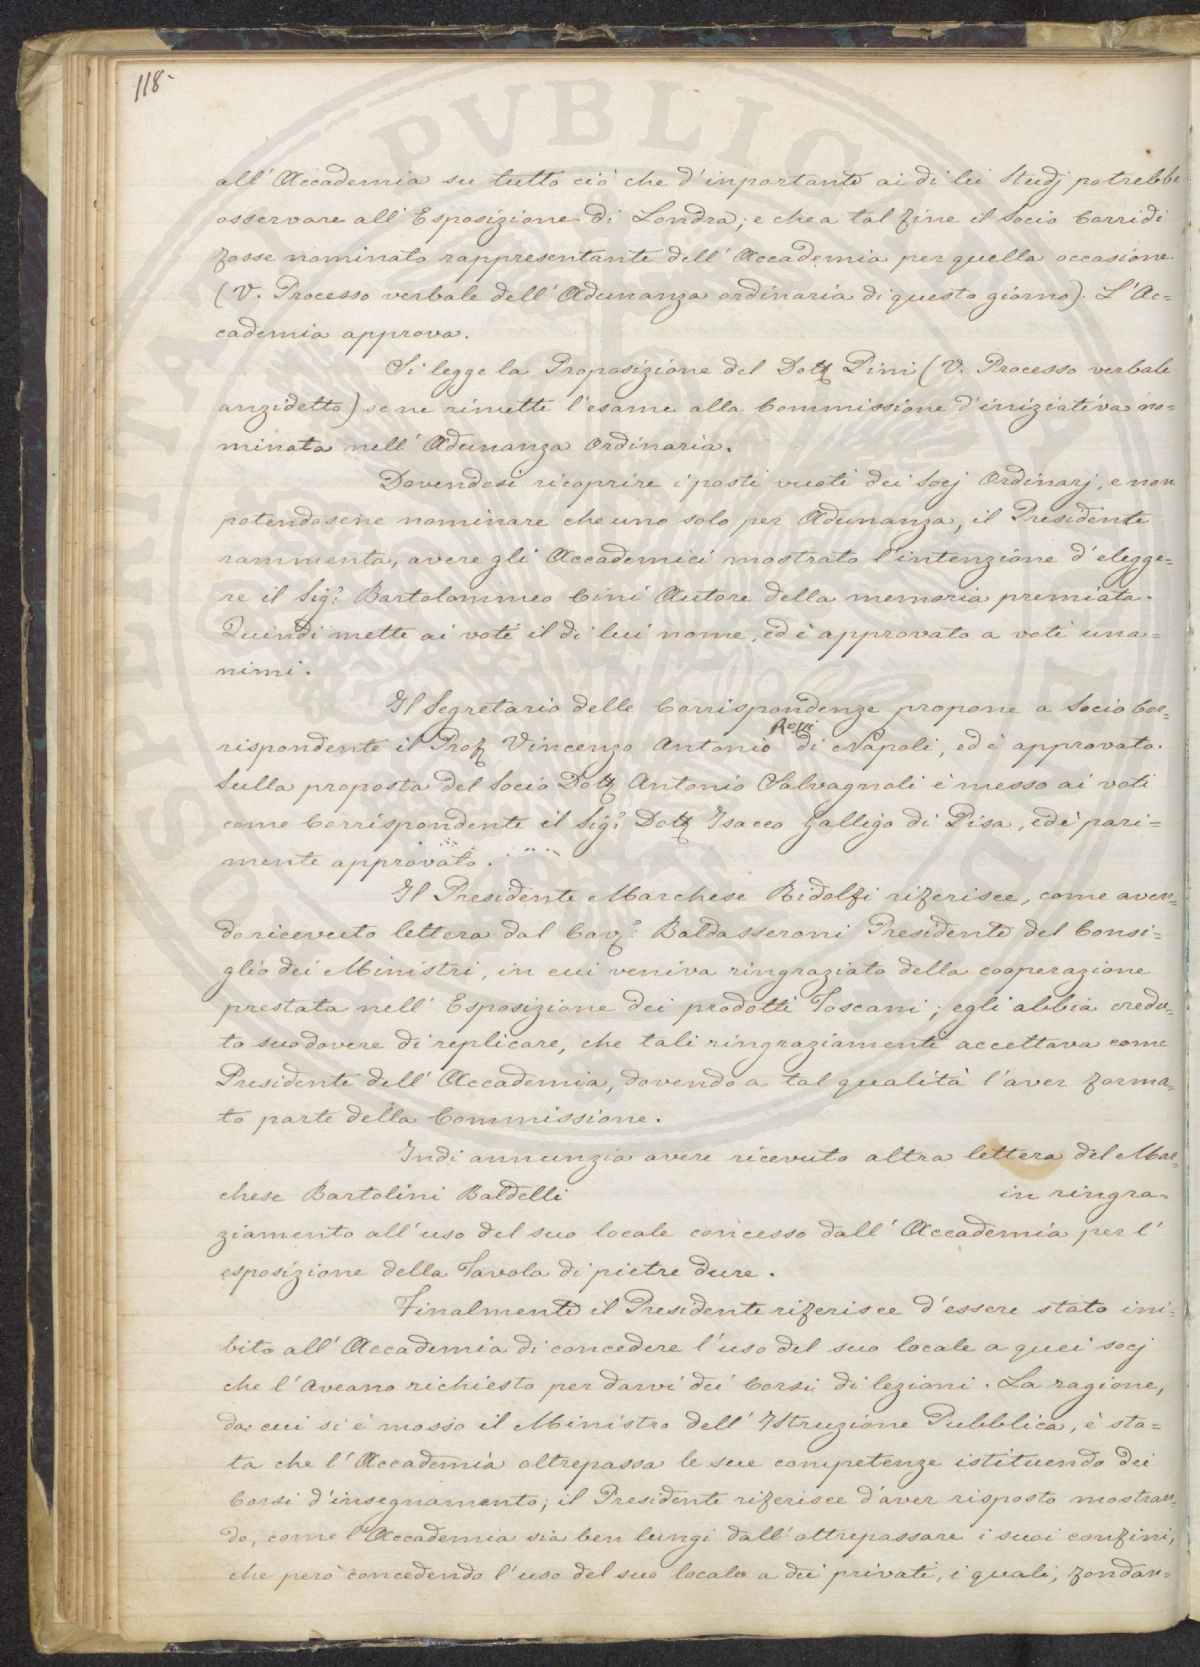 118-
all'Accademia su tutto ciò che d'inportante ai di lei Studj potrebbe
osservare all'Esposizione di Londra; e che a tal fine il Socio Corridi
fosse nominato rappresentante dell'Accademia per quella occasione.
(V. Processo verbale dell'Adunanza ordinaria di questo giorno). L'Ac=
cademia approva.
Si legge la Proposizione del Dott Pini (V. Processo verbale
anzidetto) se ne rimette l'esame alla Commissione d'iniziativa no=
minata nell'Adunanza Ordinaria.
Dovendosi ricoprire i posti vuoti dei Socj Ordinarj, e non
potendosene nominare che uno solo per Adunanza, il Presidente
rammenta, avere gli Accademici mostrato l'intenzione d'elegge=
re il Sig.r Bartolommeo Cini Autore della memoria premiata.
Quindi mette ai voti il di lui nome, ed è approvato a voti una=
nimi.
Il Segretario delle Corrispondenze propone a Socio Cor=
rispondente il Prof Vincenzo Antonio Rossi di Napoli, ed è approvato.
Sulla proposta del Socio Dott Antonio Salvagnoli è messo ai voti
come Corrispondente il Sig.r Dott Isacco Galligo di Pisa, ed è pari=
mente approvato.
Il Presidente Marchese Ridolfi riferisce, come aven=
do ricevuto lettera dal Cav.r Baldasseroni Presidente del Consi=
glio dei Ministri, in cui veniva ringraziato della cooperazione
prestata nell'Esposizione dei prodotti Toscani; egli abbia credu=
to suo dovere di replicare, che tali ringraziamenti accettava come
Presidente dell'Accademia, dovendo a tal qualità l'aver forma=
to parte della Commissione.
Indi annunzia avere ricevuto altra lettera del Mar=
chese Bartolini Baldelli in ringra=
ziamento all'uso del suo locale concesso dall'Accademia per l'
esposizione della Tavola di pietre dure.
Finalmente il Presidente riferisce d'essere stato ini=
bito all'Accademia di concedere l'uso del suo locale a quei socj
che l'aveano richiesto per darvi dei Corsi di lezioni. La ragione,
da cui si è mosso il Ministro dell'Istruzione Pubblica, è sta=
ta che l'Accademia oltrepassa le sue competenze istituendo dei
Corsi d'insegnamento; il Presidente riferisce d'aver risposto mostran=
do, come l'Accademia sia ben lungi dall'oltrepassare i suoi confini,
che però concedendo l'uso del suo locale a dei privati, i quali, fondan=